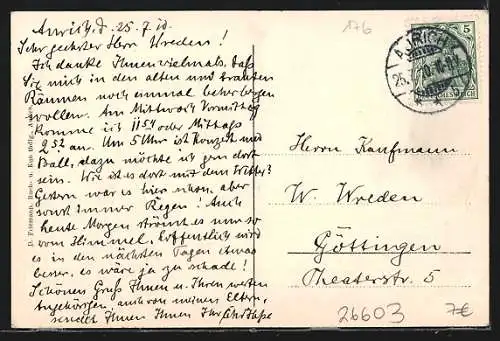 Aurich, d. 25.7.10.
Sehr geehrter Herr Wreden!
Ich danke Ihnen vielmals, daß
Sie mich in den alten und trauten
Räumen noch einmal beherbergen
wollen. Am Mittwoch Vormittag
komme ich 11 54 oder Mittags
2 52 an. Um 5 Uhr ist Konzert und
Ball, dazu möchte ich gern dort
sein. Wie ist es dort mit dem Wetter?
Gestern war es hier schon, aber
sonst immer Regen! Auch
heute Morgen strömt es nur so
vom Himmel. Hoffentlich wird
es in den nächsten Tagen etwas
besser, es wäre ja zu schade!
Schönen Gruß Ihnen u. Ihren werten
Angehörigen, auch von meinen Eltern,
sendet Ihnen Ihr
176
5
AURICH
25.
Herrn Kaufmann
W. Wreden
Göttingen
Theaterstr. 5
26603
7€